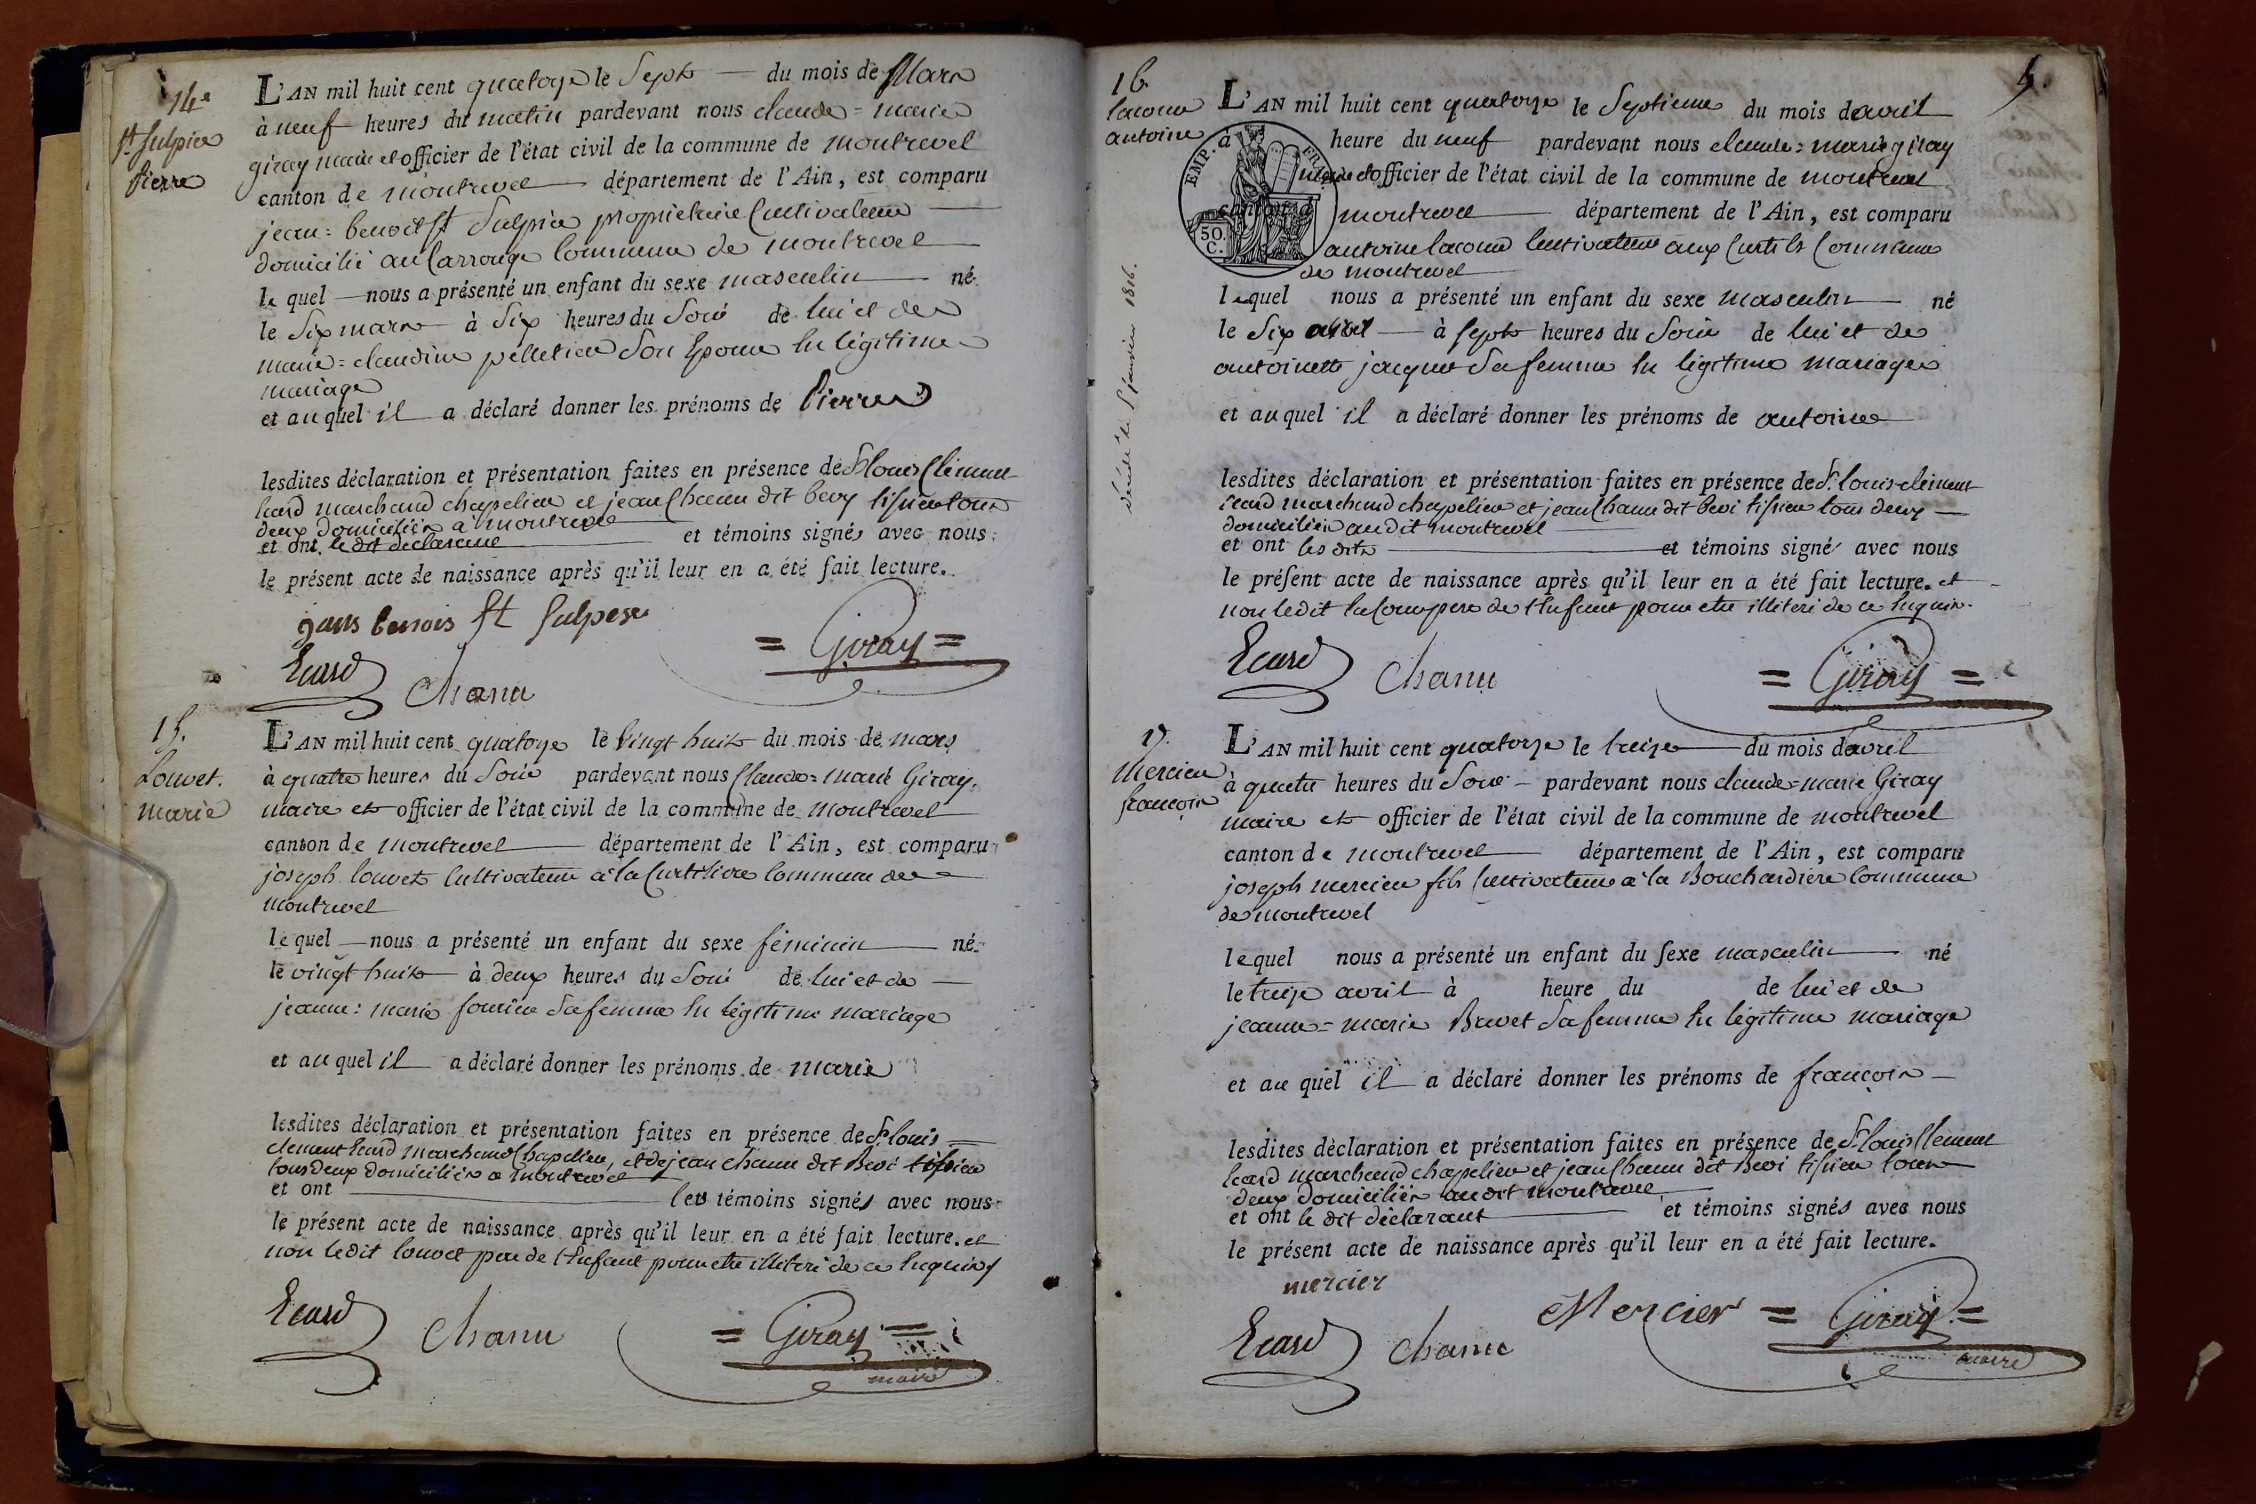 14e
St Sulpice
Pierre
L'AN mil huit cent quatorze le Sept du mois de Mars
à neuf heures du matin pardevant nous claude = marie
giray maire et officier de l'état civil de la commune de montrevel
canton de montrevel département de l'Ain, est comparu
jean = benoit St Sulpice propriétaire Cultivateur
domicilié au Carrouge Commune de montrevel
le quel nous a présenté un enfant du sexe masculin né
le Six mars à Six heures du Soir de lui et de
marie = claudine pelletier Son Epouse En légitime
mariage
et au quel il a déclaré donner les prénoms de Pierre
lesdites déclaration et présentation faites en présence de Sr louis Clément
Ecard marchand chapelier et jean Chanu dit bevy tissier tous
deux domiciliés a montrevel
et ont le dit déclarant et témoins signés avec nous
le présent acte de naissance après qu'il leur en a été fait lecture.
jans benois St Sulpese
= Giray =
Ecard Chanu
15.
Louvet.
marie
L'AN mil huit cent quatorze le Vingt huit du mois de mars
à quatre heures du Soir pardevant nous Claude = marie Giray
maire et officier de l'état civil de la commune de montrevel
canton de montrevel département de l'Ain, est comparu
joseph louvet Cultivateur à la Curtilière Commune de
montrevel
le quel nous a présenté un enfant du sexe féminin né
le vingt huit à deux heures du Soir de lui et de
jeanne = marie fourier Sa femme En légitime mariage
et au quel il a déclaré donner les prénoms de marie
lesdites déclaration et présentation faites en présence de Sr louis
clement Ecard marchand Chapelier, et de jean chanu dit Bevi tissier
tous deux domiciliés a montrevel
et ont les témoins signés avec nous
le présent acte de naissance après qu'il leur en a été fait lecture. et
non ledit louvet pere de l'Enfant pour etre illiteré de ce Enquis
Ecard Chanu = Giray =
maire
5.
16.
lacome
antoine
EMP. FRA
50 C.
décédé le 8 janvier 1816.
L'AN mil huit cent quatorze le Septieme du mois d'avril
à heure du neuf pardevant nous claude = marie giray
maire et officier de l'état civil de la commune de montrevel
canton de montrevel département de l'Ain, est comparu
antoine lacome Cultivateur aux Curtils Commune
de montrevel
lequel nous a présenté un enfant du sexe masculin né
le Six avril à Sept heures du Soir de lui et de
antoinette jacquet Sa femme En légitime mariage
et au quel il a déclaré donner les prénoms de antoine
lesdites déclaration et présentation faites en présence de Sr louis clement
Ecard marchand chapelier et jean Chanu dit bevi tissier tous deux
domiciliés au dit montrevel
et ont les dits et témoins signé avec nous
le présent acte de naissance après qu'il leur en a été fait lecture. et
non ledit lacome pere de l'Enfant pour etre illiteré de ce Enquis.
Ecard Chanu = Giray =
17.
Mercier
françois
L'AN mil huit cent quatorze le treize du mois d'avril
à quatre heures du Soir pardevant nous claude = marie Giray
maire et officier de l'état civil de la commune de montrevel
canton de montrevel département de l'Ain, est comparu
joseph mercier fils Cultivateur a la Bouchardière Commune
de montrevel
lequel nous a présenté un enfant du sexe masculin né
le treize avril à heure du de lui et de
jeanne = marie Buvet Sa femme En légitime mariage
et au quel il a déclaré donner les prénoms de françois
lesdites déclaration et présentation faites en présence de Sr louis Clement
Ecard marchand chapelier et jean Chanu dit Bevi tissier tous
deux domiciliés au dit montrevel
et ont le dit déclarant et témoins signés avec nous
le présent acte de naissance après qu'il leur en a été fait lecture.
mercier
Mercier = Giray =
Ecard Chanu maire